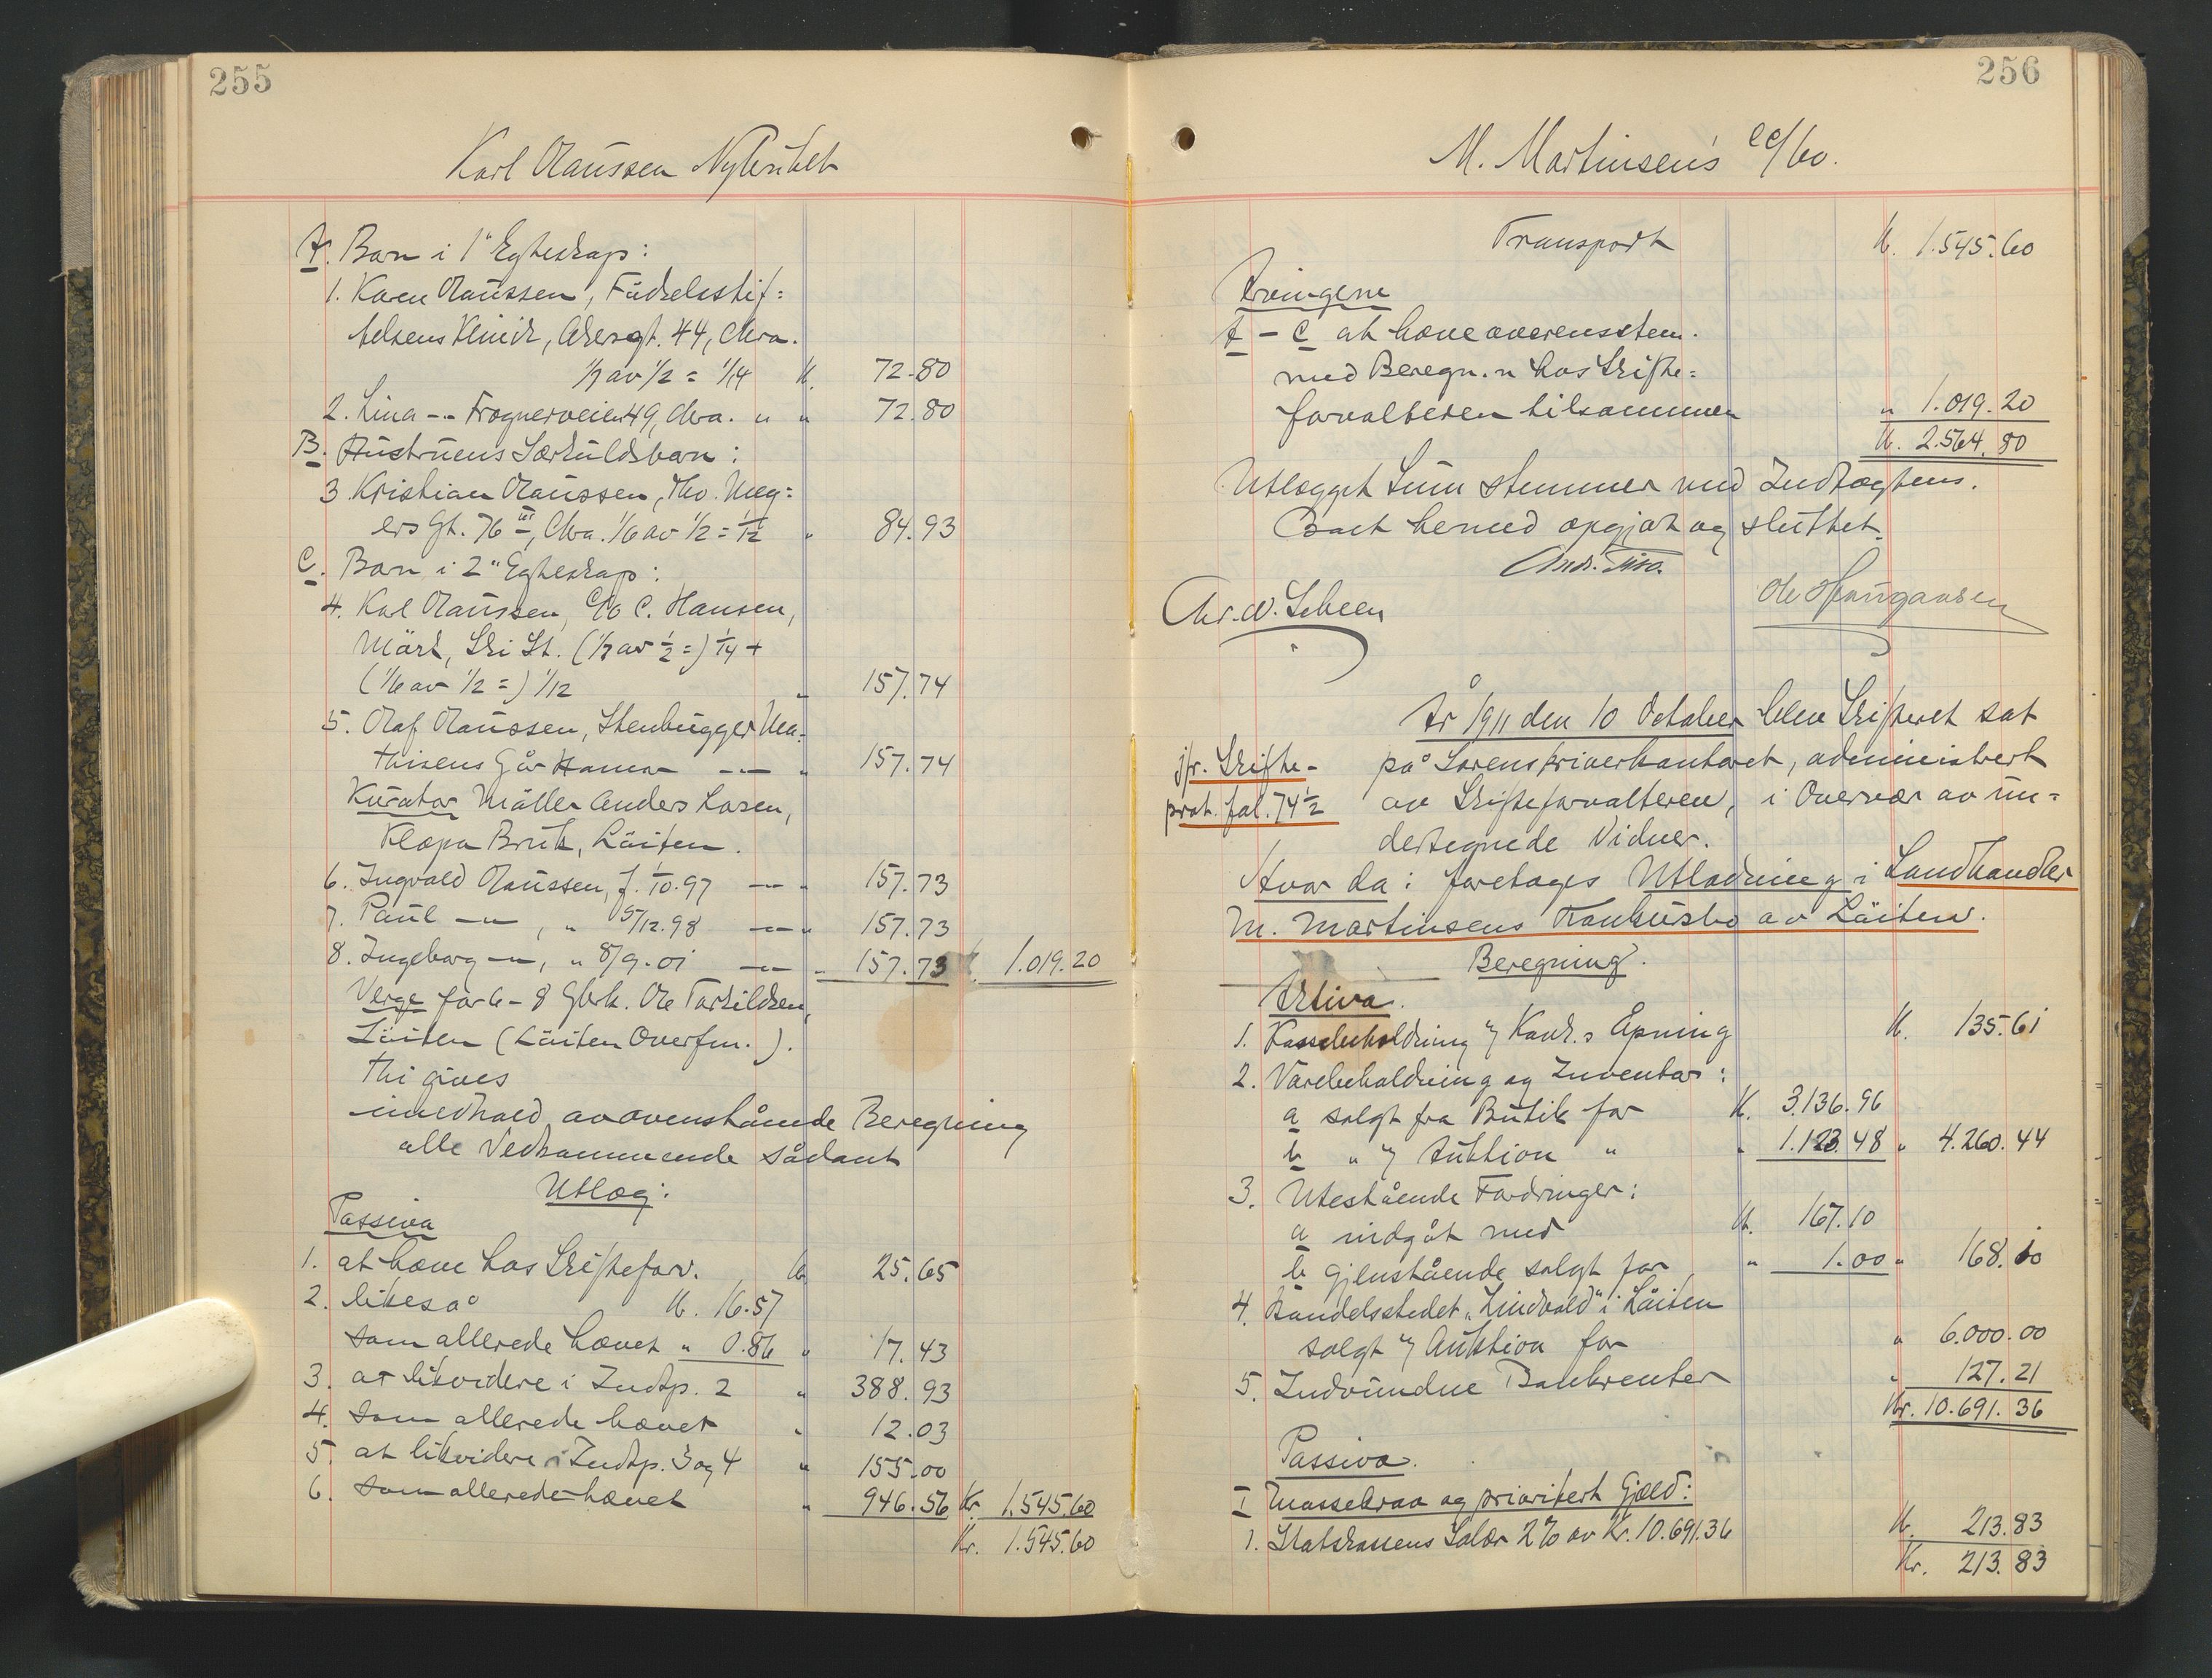 255
Karl Olaussen
A. Barn i 1" Egteskap:
1. Karen Olaussen, Fødselsstif=
telsens Klinik, Akersgt. 44, Chra.
1/7 av 1/2 = 1/14 K. 72.80
2. Lina -"- Frognerveien 49, Chra. " " 72.80
B. Hustruens Særkuldsbarn:
3. Kristian Olaussen, Tho. Meg=
ers Gt. 76 III, Chra. 1/6 av 1/2 = 1/12 " 84.93
C. Barn i 2" Egteskap:
4. Karl Olaussen, c/o C. Hansen,
Mårk, Ski St. (1/7 av 1/2 =) 1/14 +
(1/6 av 1/2 =) 1/12 " 157.74
5. Olaf Olaussen, Stenhugger Ma-
thisens Går Hamar -"- " 157.74
Kurator Møller Anders Losen,
Klæpa Bruk, Løiten.
6. Ingvald Olaussen, f. 1/10.97 -"- " 157.73
7. Paul -"-, " 5/12.98 -"- " 157.73
8. Ingeborg -"-, " 8/9.01 -"- " 157.73 K. 1.019.20
Verge for 6-8 Gbrk. Ole Torkildsen,
Løiten (Løiten Overfm.).
Thi gives
i medhold av ovenstående Beregning
alle Vedkommende sådant
Utlæg:
Passiva
1. at hæve hos Skifteforv. K. 25.65
2. likeså K. 16.57
som allerede hævet " 0.86 " 17.43
3. at likvidere i Indtp. 2 " 388.93
4. som allerede hævet " 12.03
5. at likvidere i Indtp. 3 og 4 " 155.00
6. som allerede hævet " 946.56 Kr. 1.545.60
Kr. 1.545.60
256
M. Martinsen's
Transport K. 1.545.60
Arvingerne
A - C at hæve overensstem.
med Beregn.n hos Skifte=
forvalteren tilsammen " 1.019.20
K. 2.564.80
Utlægget Sum stemmer med Indtægtens.
Boet hermed opgjort og sluttet.
Chr. W. Scheen
År 1911 den 10 October blev Skifteret sat
jfr. Skifte-
prot. fol. 74 1/2
på Sorenskriverkontoret, administrert
av Skifteforvalteren, i Overvær av un=
dertegnede Vidner.
Hvor da: foretages Utlodning i Landhandler
M. Martinsens Konkursbo av Løiten.
Beregning.
Aktiva.
1. Kassebeholdning v/ Konk.s Åpning K. 135.61
2. Varebeholdning og Inventar:
a solgt fra Butik for K. 3.136.96
b " v/ Auktion " " 1.123.48 " 4.260.44
3. Utestående Fordringer:
a indgåt med K. 167.10
b gjenstående solgt for " 1.00 " 168.10
4. Handelsstedet "Lindvold" i Løiten
solgt v/ Auktion for " 6.000.00
5. Indvundne Bankrenter " 127.21
Kr. 10.691.36
Passiva.
I Massekrav og prioritert Gjæld:
1. Statskassens Salær 2% av Kr. 10.691.36 K. 213.83
Kr. 213.83